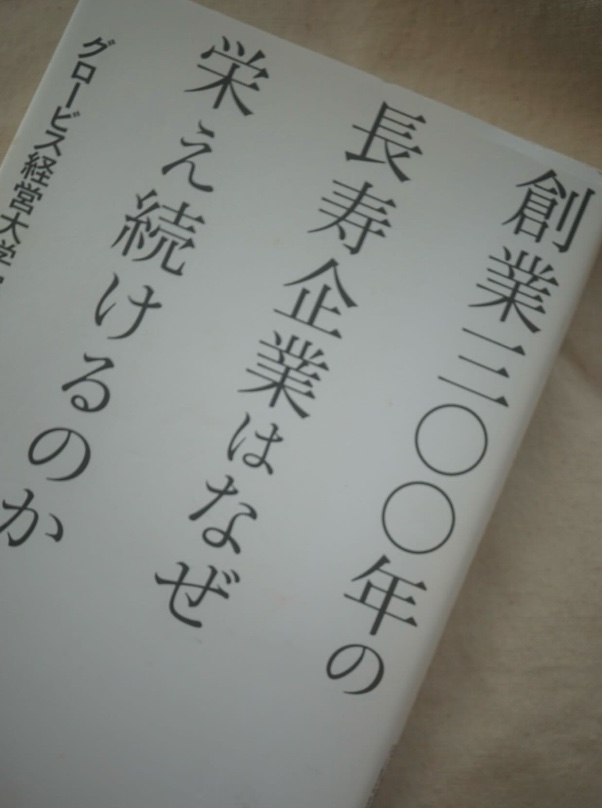 創業三〇〇年の
長寿企業はなぜ
栄え続けるのか
グロービス経営大学